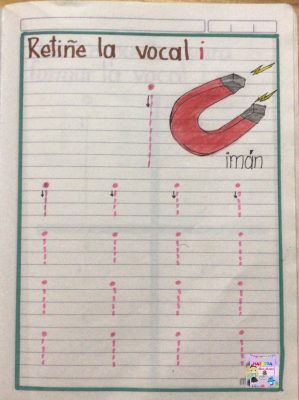 Retiñe la vocal i
i
imán
i i i i
i i i i
i i i i
i i i i